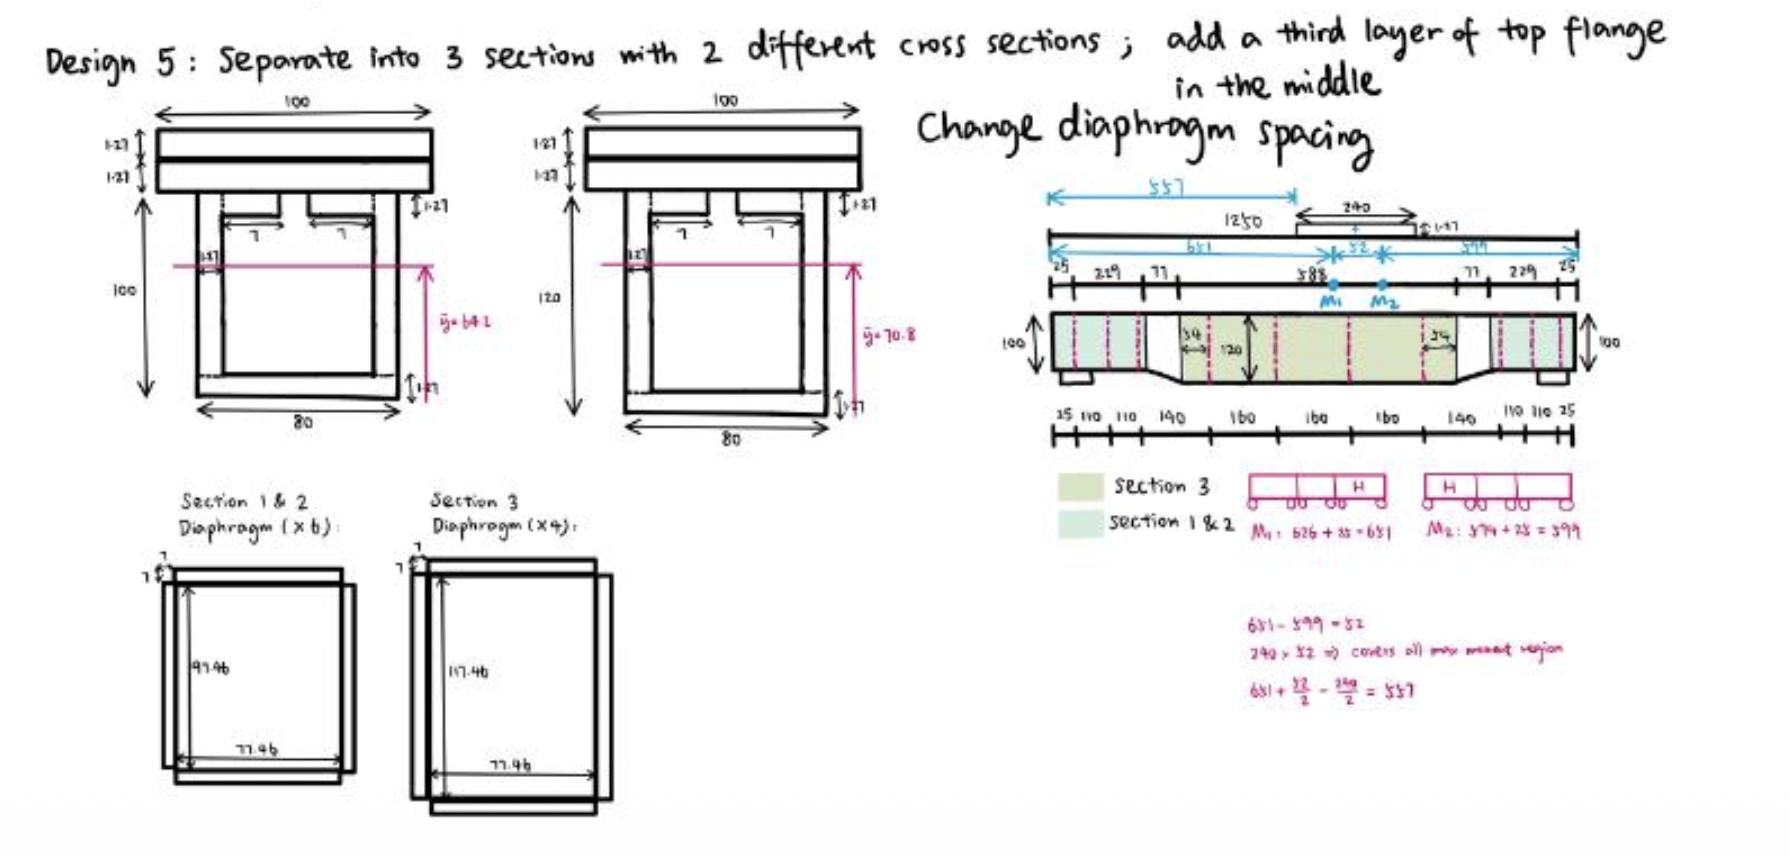 Design 5 : Separate into 3 sections with 2 different cross sections ; add a third layer of top flange
in the middle
Change diaphragm spacing
100
1.27
1.27
1.27
7
7
1.27
100
ȳ=64.2
1.27
80
100
1.27
1.27
1.27
7
7
1.27
120
ȳ=70.8
1.27
80
557
240
1250
1.27
651
52
599
25
229
77
588
77
229
25
M1
M2
100
34
120
34
100
25 110 110 140 160 160 160 140 110 110 25
Section 3
Section 1 & 2
H
H
M1 : 626 + 25 = 651
M2 : 574 + 25 = 599
651 - 599 = 52
240 > 52 => covers all max moment region
651 + 52/2 - 240/2 = 557
Section 1 & 2
Diaphragm (x 6) :
7
7
97.46
77.46
Section 3
Diaphragm (x4) :
7
7
117.46
77.46